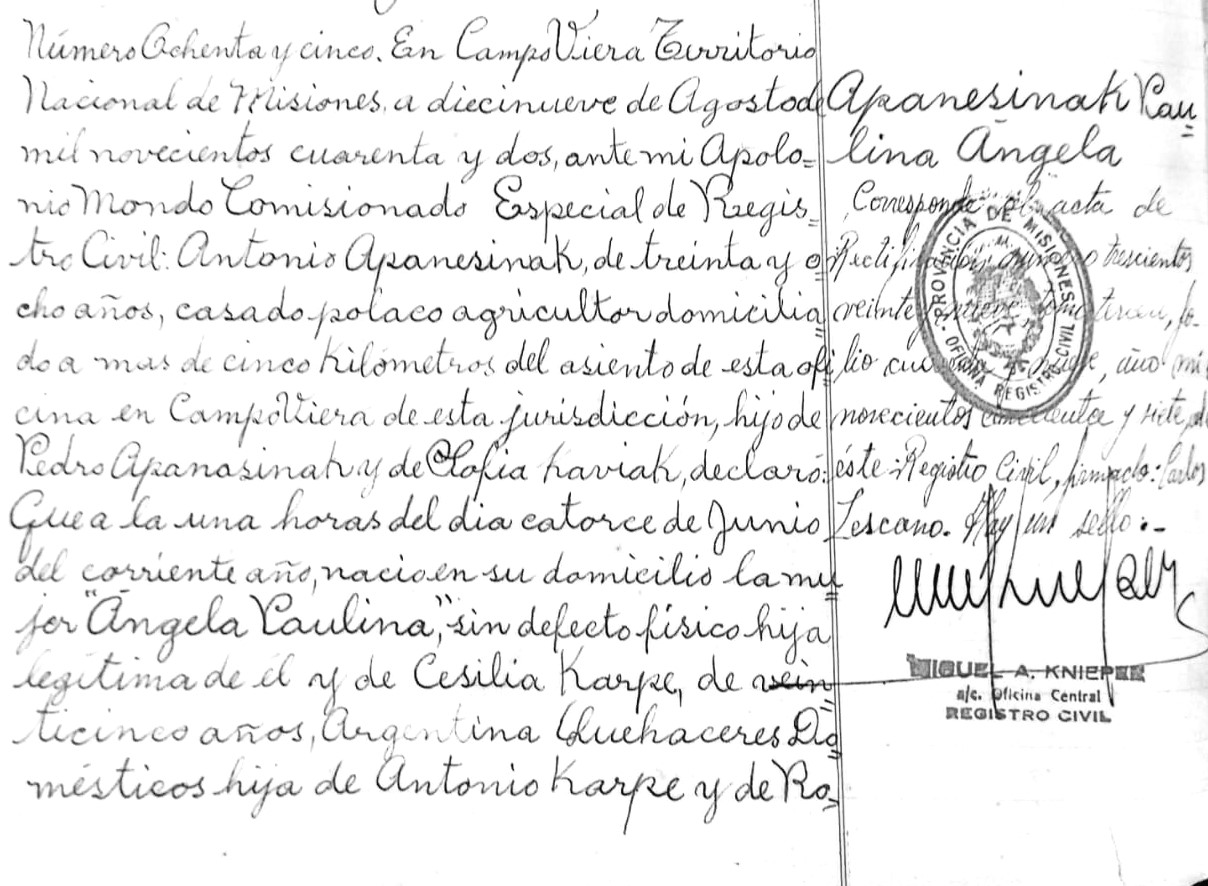 Número Ochenta y cinco. En Campo Viera Territorio
Nacional de Misiones, a diecinueve de Agosto de
mil novecientos cuarenta y dos, ante mi Apolo=
nio Mondo Comisionado Especial de Regis=
tro Civil: Antonio Apanesinak, de treinta y o
cho años, casado polaco agricultor domicilia=
do a mas de cinco Kilómetros del asiento de esta ofi
cina en Campo Viera de esta jurisdicción, hijo de
Pedro Apanasinak y de Clofia Kaviak, declaró:
Que a la una horas del dia catorce de Junio
del corriente año, nacio en su domicilio la mu=
jer "Ángela Paulina," sin defecto físico hija
legítima de él y de Cesilia Karpe, de vein=
ticinco años, Argentina Quehaceres Do=
mésticos hija de Antonio Karpe y de Ro=
Apanesinak Pau=
lina Ángela
Corresponde el acta de
Rectificación número trescientos
veinte y nueve, tomo tercero, fo-
lio y nueve, año mil
novecientos cincuenta y siete, de
éste Registro Civil, firmado: Carlos
Lescano. Hay un sello:-
PROVINCIA DE MISIONES
OFICINA REGISTRO CIVIL
MIGUEL A. KNIEPER
a/c. Oficina Central
REGISTRO CIVIL